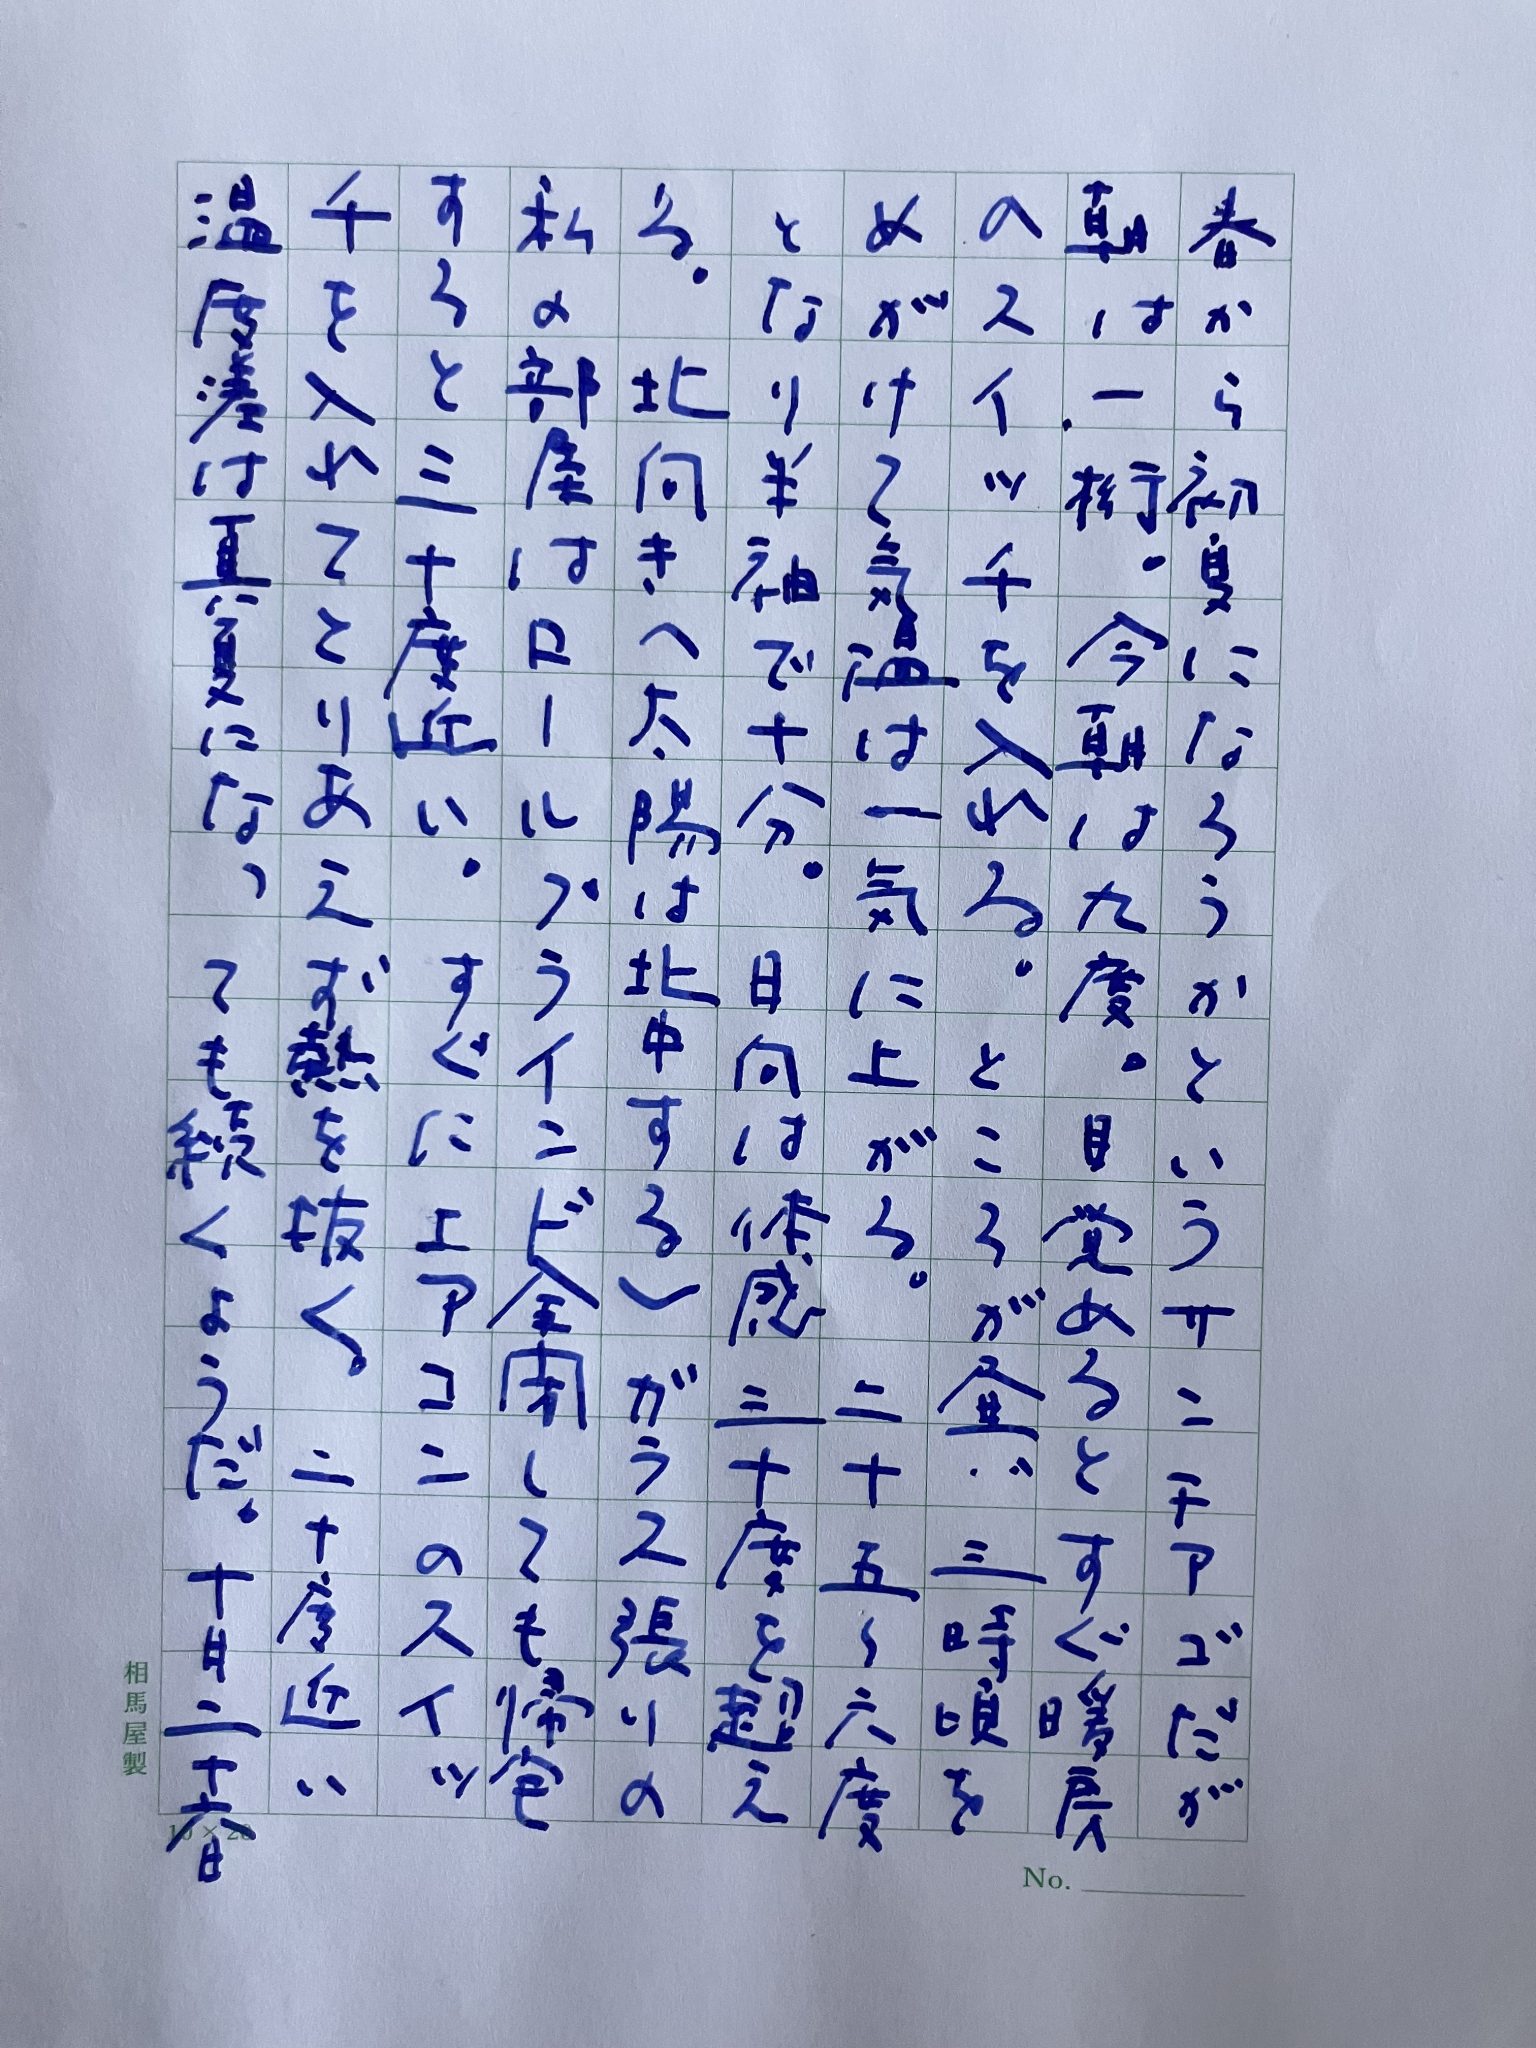 春から初夏になろうかというサンテアゴだが
朝は一桁。今朝は九度。目覚めるとすぐ暖房
のスイッチを入れる。ところが昼、三時頃を
めがけて気温は一気に上がる。二十五〜六度
となり半袖で十分。日向は体感三十度を超え
る。北向きへ太陽は北中する）ガラス張りの
私の部屋はロールブラインド全開しても帰宅
すろと三十度近い。すぐにエアコンのスイッ
チを入れてとりあえず熱を抜く。二十度近い
温度差は真夏になっても続くようだ。十月二十六日
相馬屋製
10×20
No.